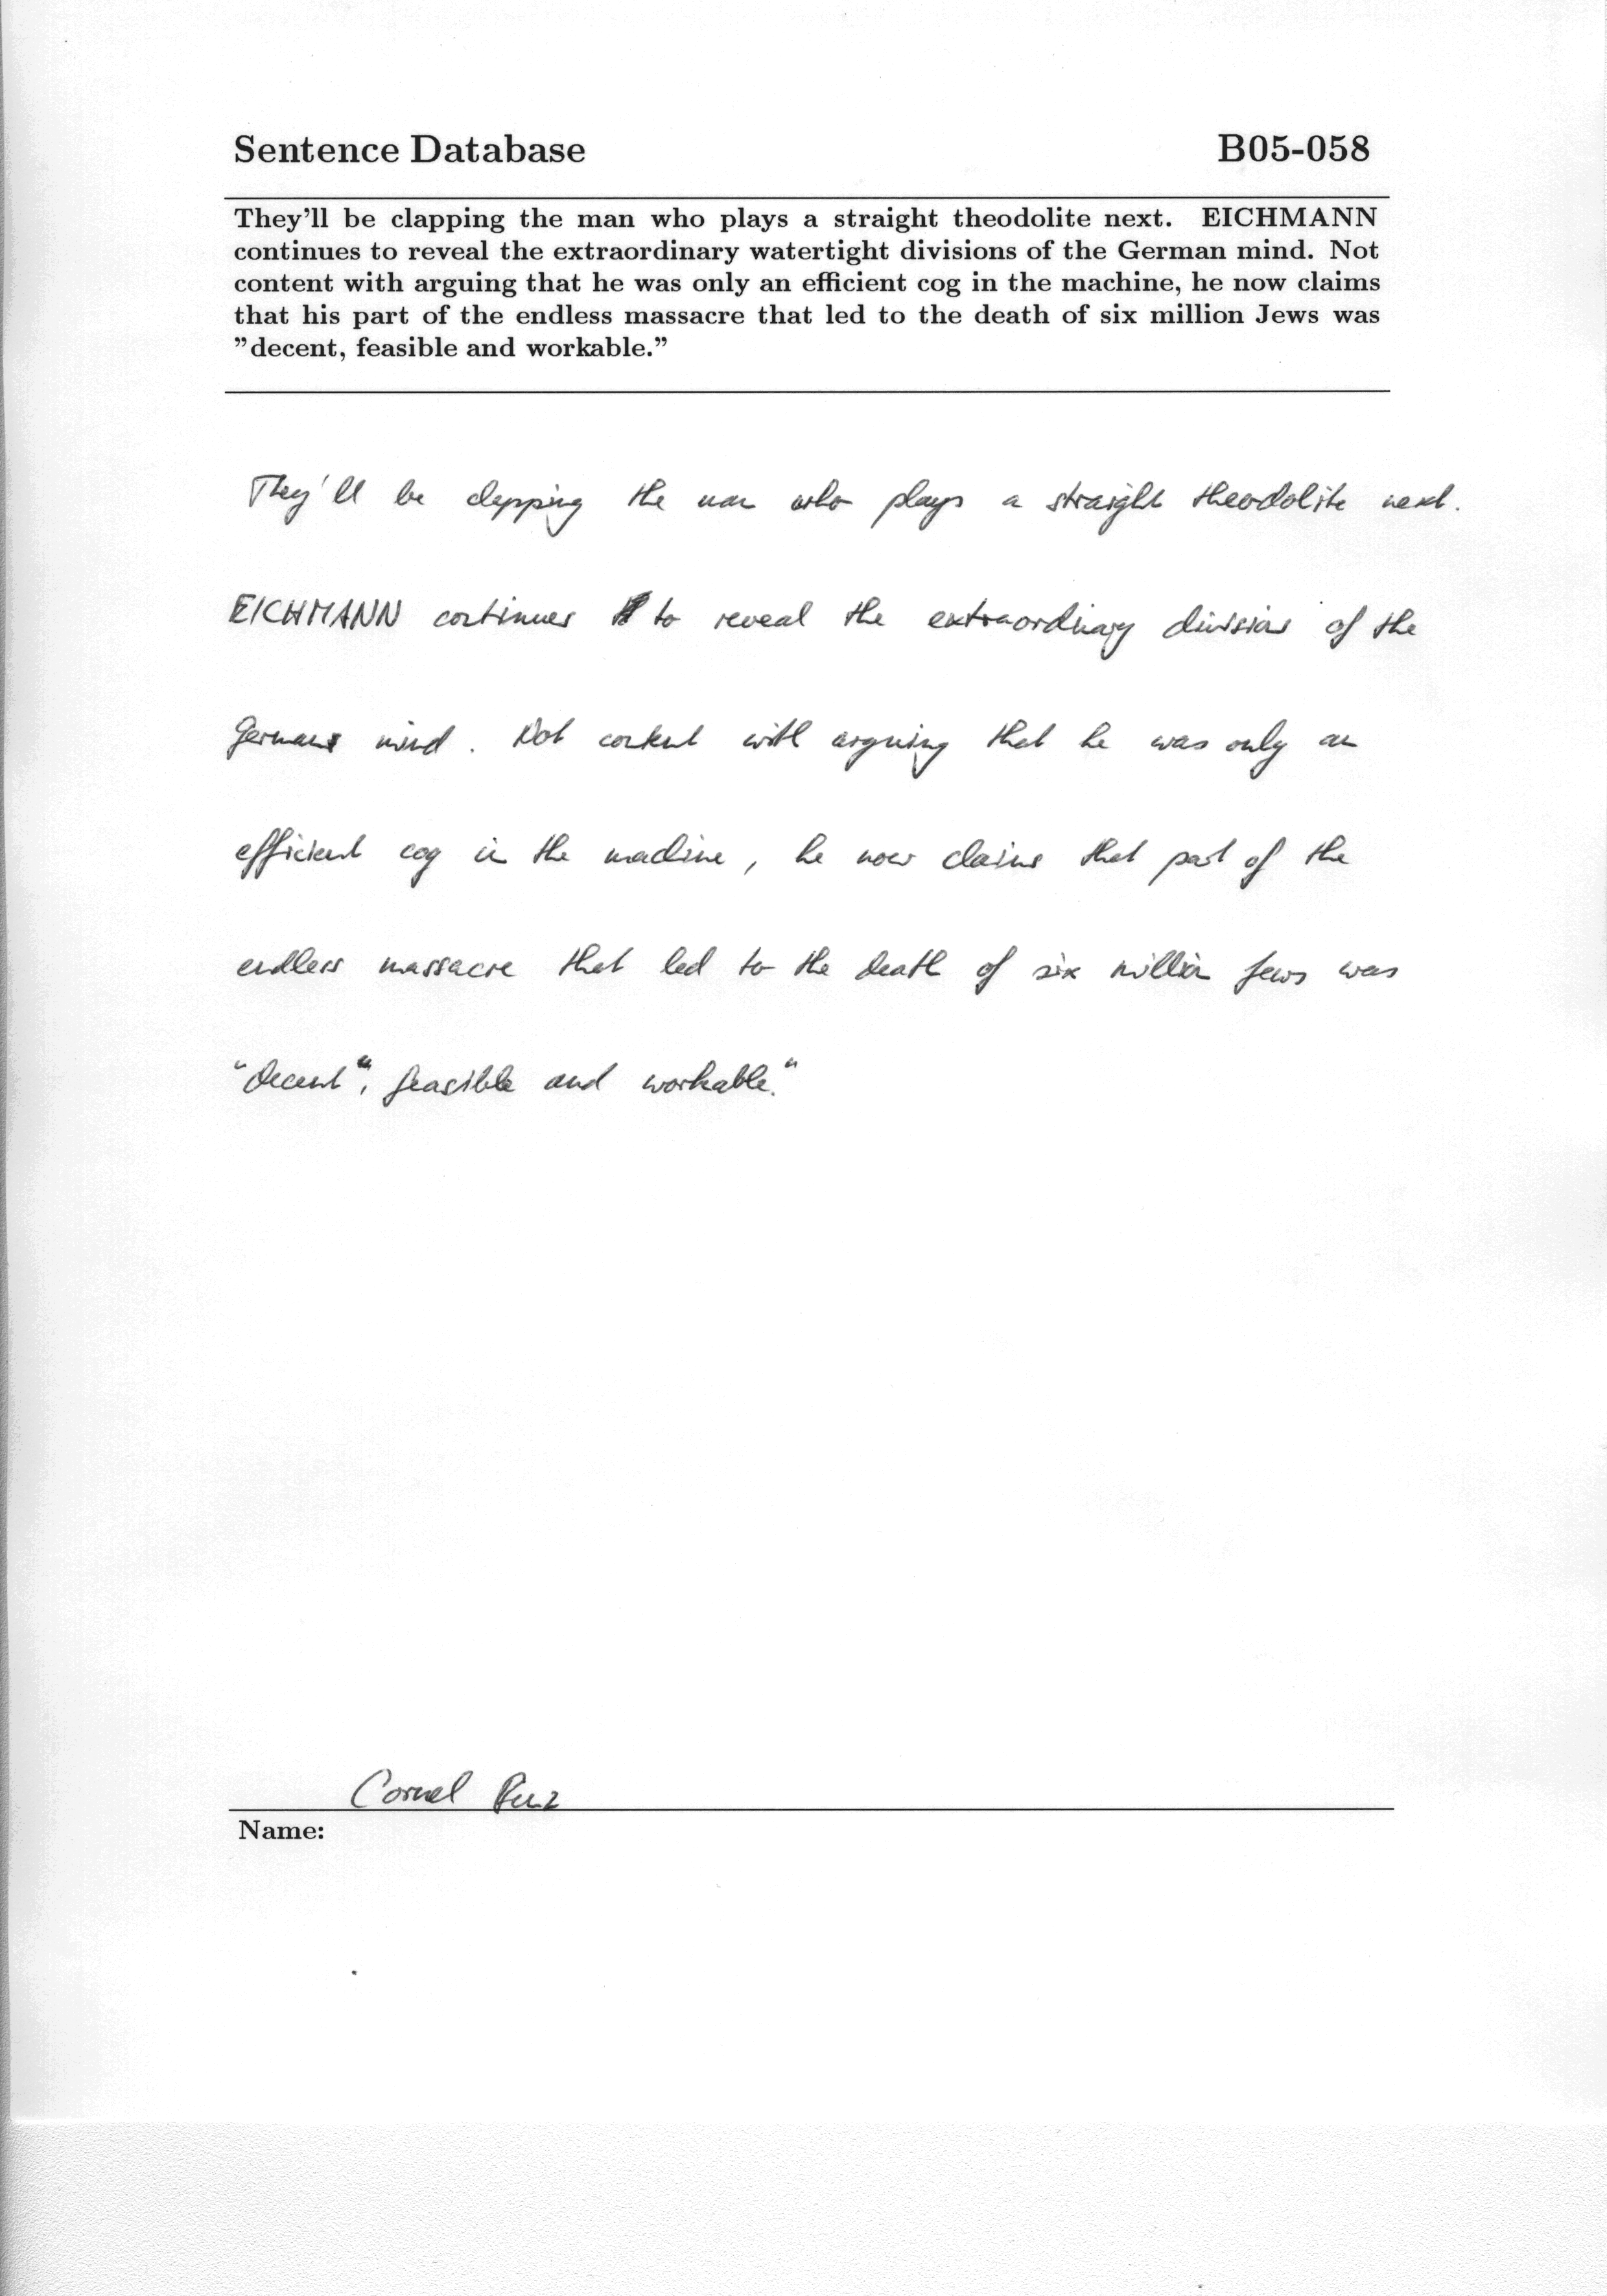 Sentence Database B05-058
They'll be clapping the man who plays a straight theodolite next. EICHMANN
continues to reveal the extraordinary watertight divisions of the German mind. Not
content with arguing that he was only an efficient cog in the machine, he now claims
that his part of the endless massacre that led to the death of six million Jews was
"decent, feasible and workable."
They'll be clapping the man who plays a straight theodolite next.
EICHMANN continues to reveal the extraordinary divisions of the
German mind. Not content with arguing that he was only an
efficient cog in the machine, he now claims that part of the
endless massacre that led to the death of six million Jews was
"decent", feasible and workable."
Cornel
Name: